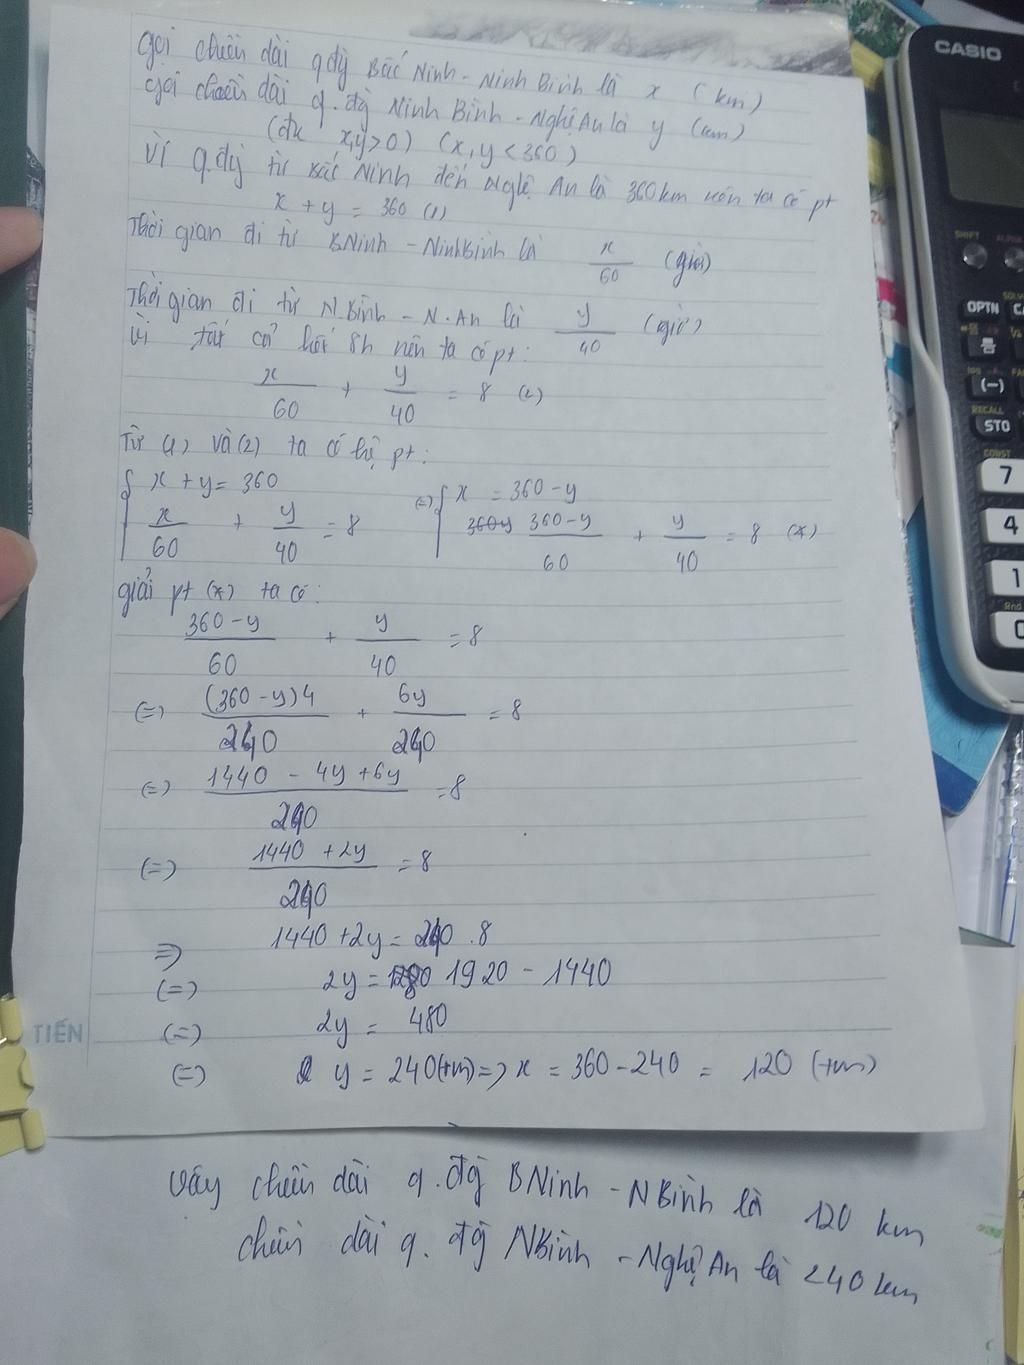 Gọi chiều dài q.đg Bắc Ninh - Ninh Bình là x (km)
Gọi chiều dài q.đg Ninh Bình - Nghệ An là y (km)
(đk x,y>0) (x,y<360)
Vì q.đg từ Bắc Ninh đến Nghệ An là 360km nên ta có pt
x + y = 360 (1)
Thời gian đi từ BNinh - NinhBình là x/60 (giờ)
Thời gian đi từ N.Bình - N.An là y/40 (giờ)
Vì tất cả hết 8h nên ta có pt:
x/60 + y/40 = 8 (2)
Từ (1) và (2) ta có hệ pt:
{ x + y = 360 (=) { x = 360 - y
x/60 + y/40 = 8 (360-y)/60 + y/40 = 8 (*)
giải pt (*) ta có:
(360-y)/60 + y/40 = 8
(=) (360-y)4/240 + 6y/240 = 8
(=) (1440 - 4y + 6y)/240 = 8
(=) (1440 + 2y)/240 = 8
=> 1440 + 2y = 240 . 8
(=) 2y = 1920 - 1440
(=) 2y = 480
(=) y = 240 (tm) => x = 360 - 240 = 120 (tm)
Vậy chiều dài q.đg BNinh - NBình là 120 km
chiều dài q.đg NBình - Nghệ An là 240 km
TIẾN
CASIO
SHIFT
ALPHA
OPTN
(-)
RECALL
STO
CONST
7
4
1
0